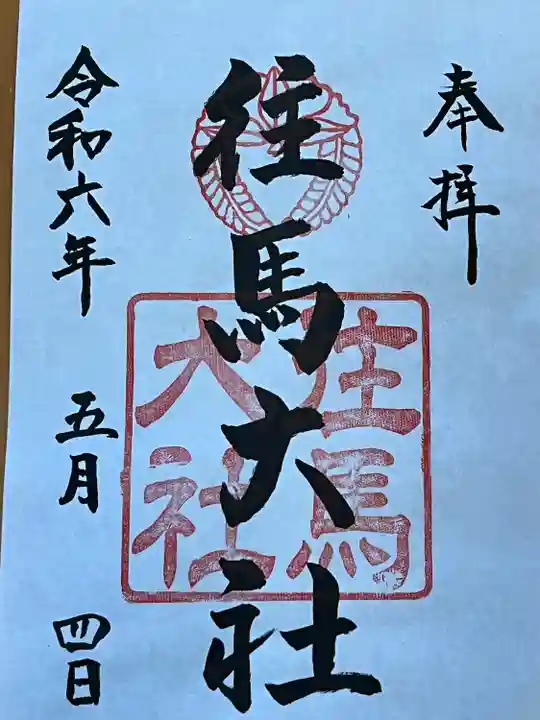 奉拝
往馬大社
往馬大社
令和六年 五月 四日